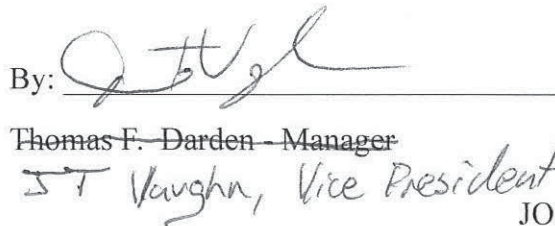 By:
Thomas F. Darden - Manager
JT Vaughn, Vice President
JO